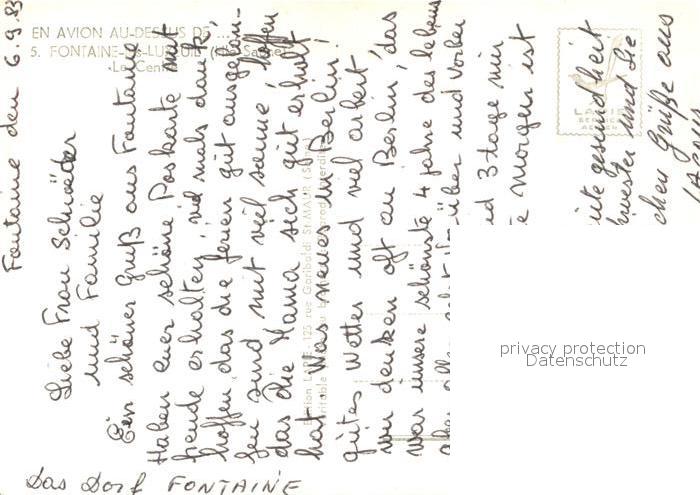 EN AVION AU-DESSUS DE ...
5. FONTAINE-lès-LUXEUIL (Hte-Saône)
Le Centre
Fontaine den 6.9.83
Liebe Frau Schröeder
und Familie
Ein schöner gruß aus Fontaine
Haben euer schöne Poskarte mit
freude erhalten, viel mals dank,
hoffen das die ferien gut
sind mit viel sonne, hoffen
das die Mama sich gut erholt
hat. Was neues in Berlin.
gutes Wetter und viel arbeit.
wir denken oft an Berlin, das
war unsere schönste 4 jahre des lebens
aber alles über und vorbei
3 tage mir
morgen ist
gesundheit
und die
chen Grüße aus
Das Dorf FONTAINE
Edition LAPIE, 125 rue Garibaldi St-MAUR (Seine)
privacy protection
Datenschutz